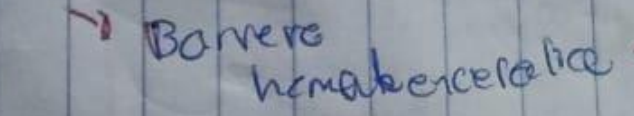 Barrere
hematoencefalica